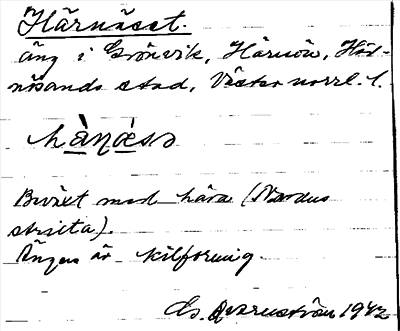 Härnäset.
äng i Grönvik, Härnön, Här-
nösands stad, Västernorrl. l.
Buret med hära (Nardus
stricta).
Ängen är kilformig
1942